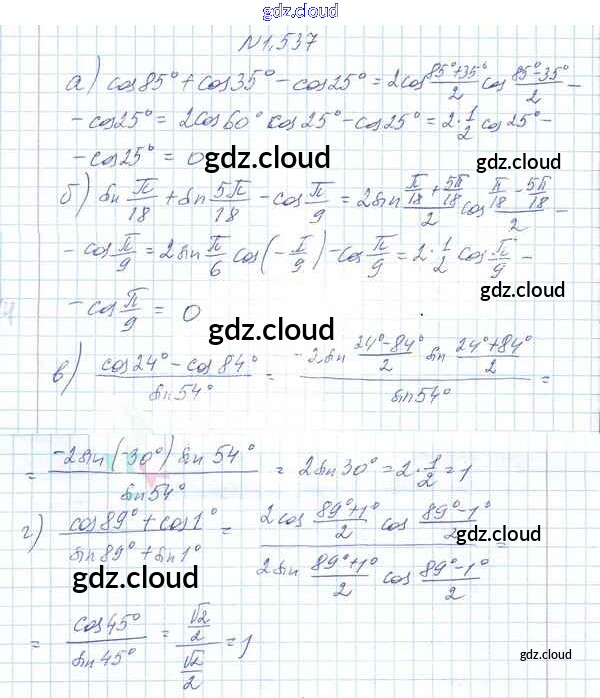 gdz.cloud
№1,537
а) cos85° + cos35° - cos25° = 2cos (85°+35°)/2 cos (85°-35°)/2 -
- cos25° = 2cos60° cos25° - cos25° = 2·1/2 cos25° -
- cos25° = 0
gdz.cloud
б) sin π/18 + sin 5π/18 - cos π/9 = 2sin (π/18 + 5π/18)/2 cos (π/18 - 5π/18)/2 -
- cos π/9 = 2sin π/6 cos(-π/9) - cos π/9 = 2·1/2 cos π/9 -
- cos π/9 = 0
gdz.cloud
в) (cos24° - cos84°)/sin54° = (-2sin (24°-84°)/2 sin (24°+84°)/2)/sin54° =
gdz.cloud
= (-2sin(-30°) sin54°)/sin54° = 2sin30° = 2·1/2 = 1
г) (cos89° + cos1°)/(sin89° + sin1°) = (2cos (89°+1°)/2 cos (89°-1°)/2)/(2sin (89°+1°)/2 cos (89°-1°)/2) =
gdz.cloud
gdz.cloud
= cos45°/sin45° = (√2/2)/(√2/2) = 1
gdz.cloud